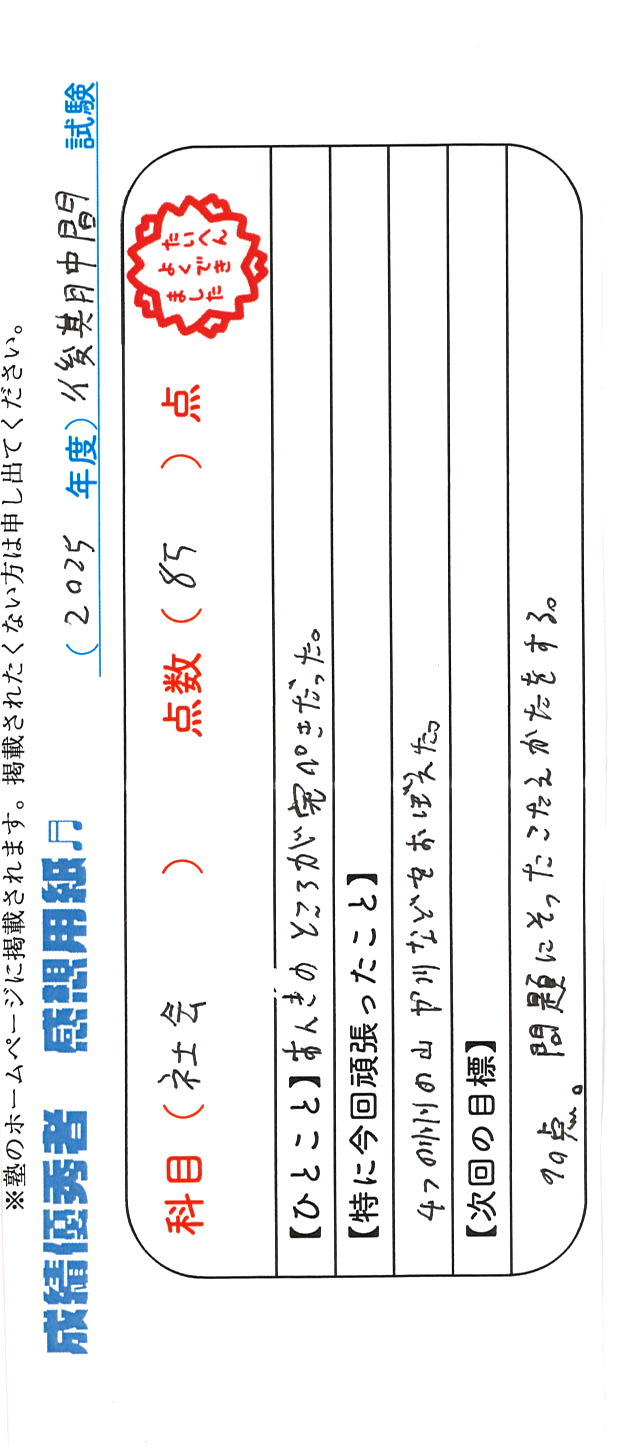 ※塾のホームページに掲載されます。掲載されたくない方は申し出てください。
成績優秀者 感想用紙♬
(2025 年度)後期中間 試験
科目(社会 ) 点数(85 )点
たいへん
よくでき
ました
【ひとこと】あんきのところが完ぺきだった。
【特に今回頑張ったこと】
4つの州の山や川などをおぼえた。
【次回の目標】
90点。問題にそったこたえかたをする。